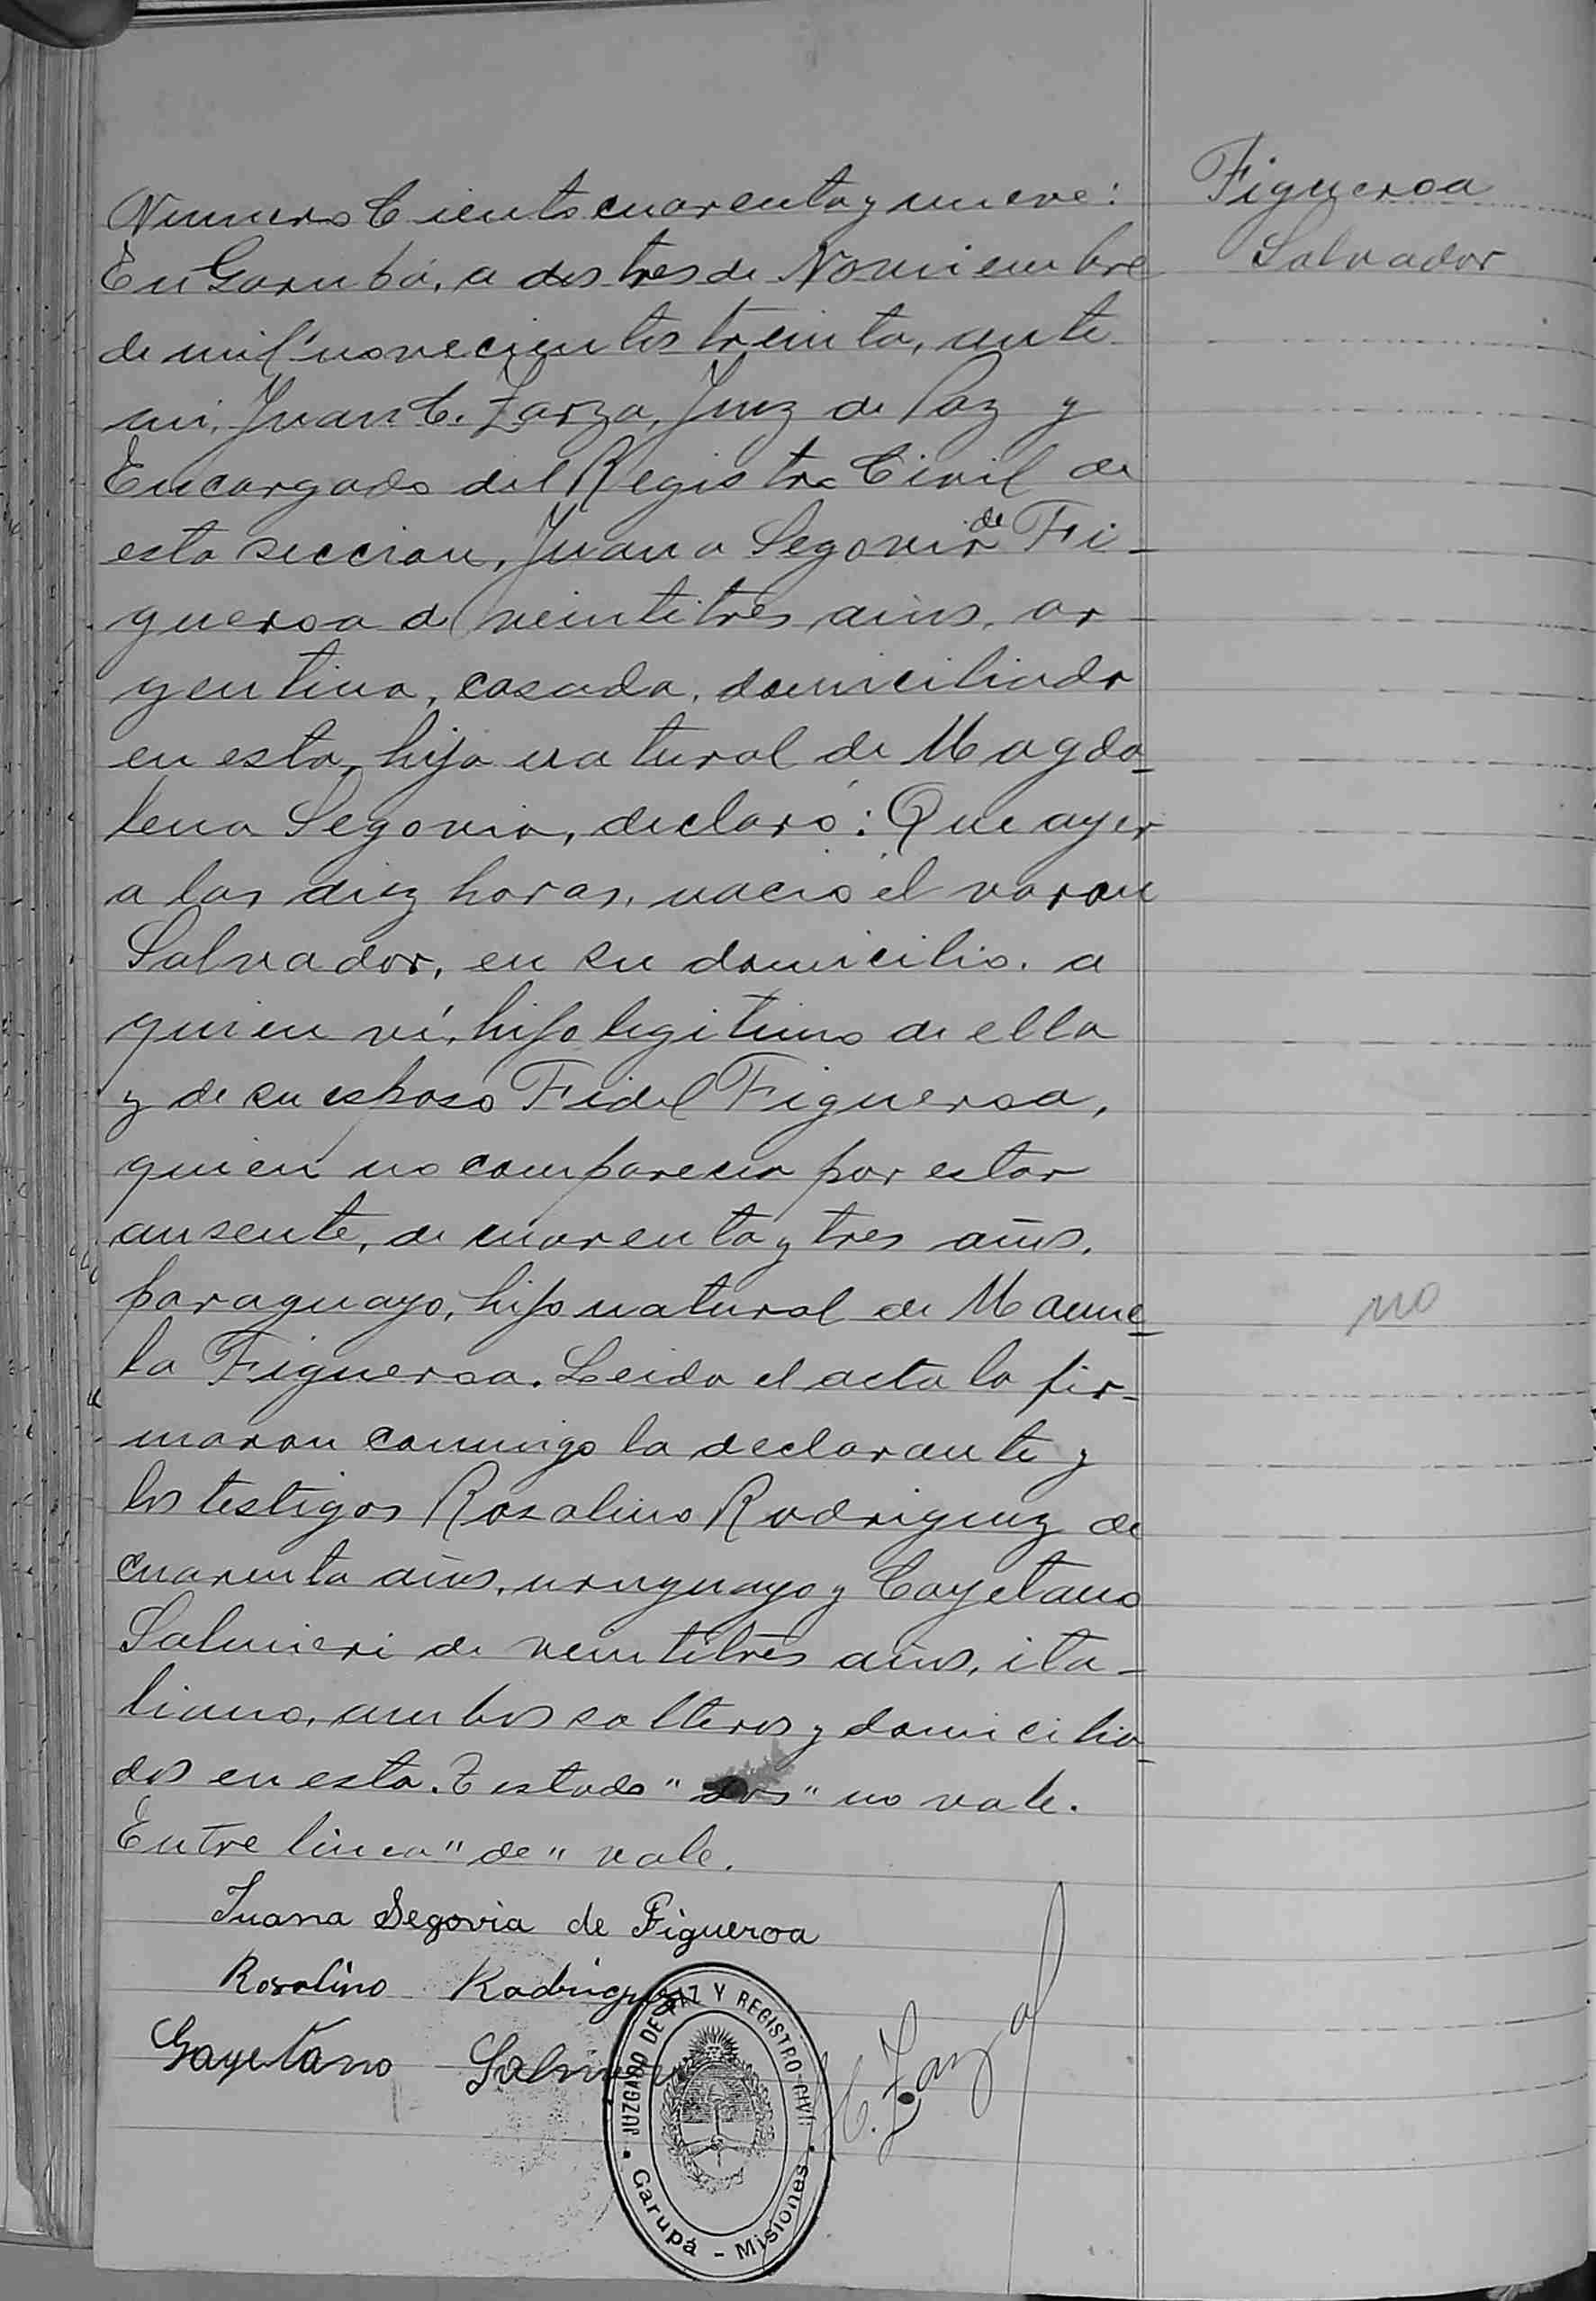 Figueroa
Salvador
Numero Ciento cuarenta y nueve:
En Garupá, a dos tres de Noviembre
de mil novecientos treinta, ante
mi, Juan C. Zarza, Juez de Paz y
Encargado del Registro Civil de
esta seccion, Juana Segovia de Fi-
gueroa de veintitres años, ar-
gentina, casada, domiciliada
en esta, hija natural de Magda-
lena Segovia, declaró: Que ayer
a las diez horas, nació el varon
Salvador, en su domicilio, a
quien ví, hijo legitimo de ella
y de su esposo Fidel Figueroa,
quien no comparece por estar
ausente, de cuarenta y tres años,
paraguayo, hijo natural de Manue-
la Figueroa. Leida el acta la fir-
maron conmigo la declarante y
los testigos Rosalino Rodriguez de
cuarenta años, uruguayo y Cayetano
Salmieri de veintitres años, ita-
liano, ambos solteros y domicilia-
dos en esta. Testado "dos" no vale.
Entre linea "de" vale.
Juana Segovia de Figueroa
Rosalino Rodriguez
Gayetano
C. Zarza
JUZGADO DE PAZ Y REGISTRO CIVIL
Garupá - Misiones
no